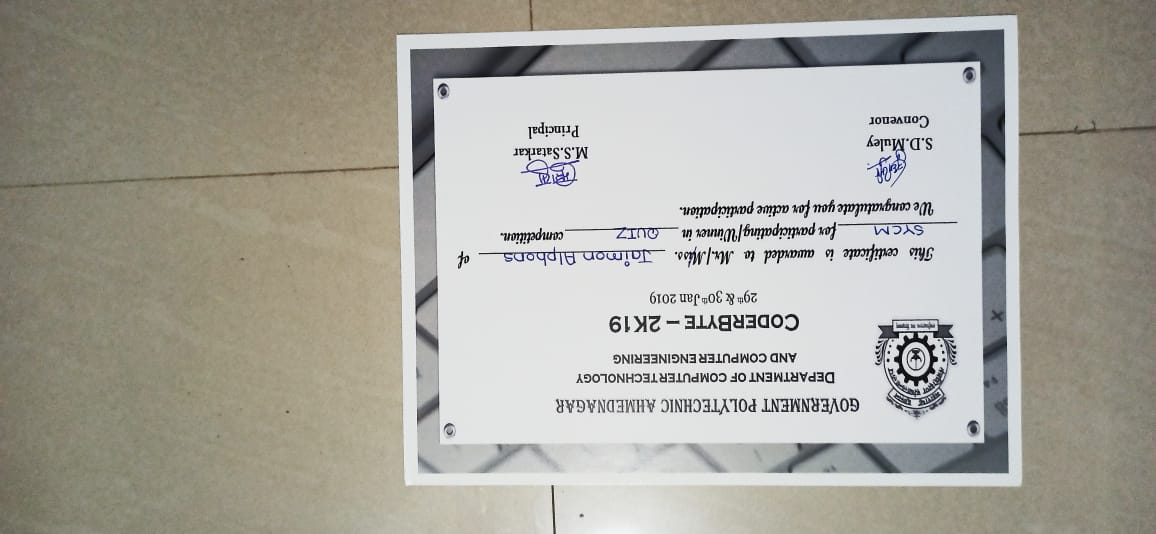 GOVERNMENT POLYTECHNIC AHMEDNAGAR
DEPARTMENT OF COMPUTER TECHNOLOGY
AND COMPUTER ENGINEERING
CODERBYTE – 2K19
29th & 30th Jan 2019
This certificate is awarded to Mr./Miss. Jaimon Alphons of
SYCM for participating/Winner in QUIZ competition.
We congratulate you for active participation.
S.D.Muley
Convenor
M.S.Satarkar
Principal